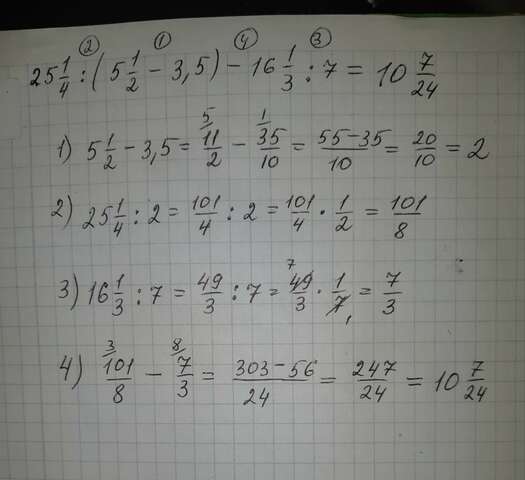 ② ① ④ ③
25 1/4 : (5 1/2 - 3,5) - 16 1/3 : 7 = 10 7/24
1) 5 1/2 - 3,5 = 5/ 11/2 - 1/ 35/10 = 55-35/10 = 20/10 = 2
2) 25 1/4 : 2 = 101/4 : 2 = 101/4 · 1/2 = 101/8
3) 16 1/3 : 7 = 49/3 : 7 = 7 49/3 · 1/7 1 = 7/3
4) 3/ 101/8 - 8/ 7/3 = 303-56/24 = 247/24 = 10 7/24